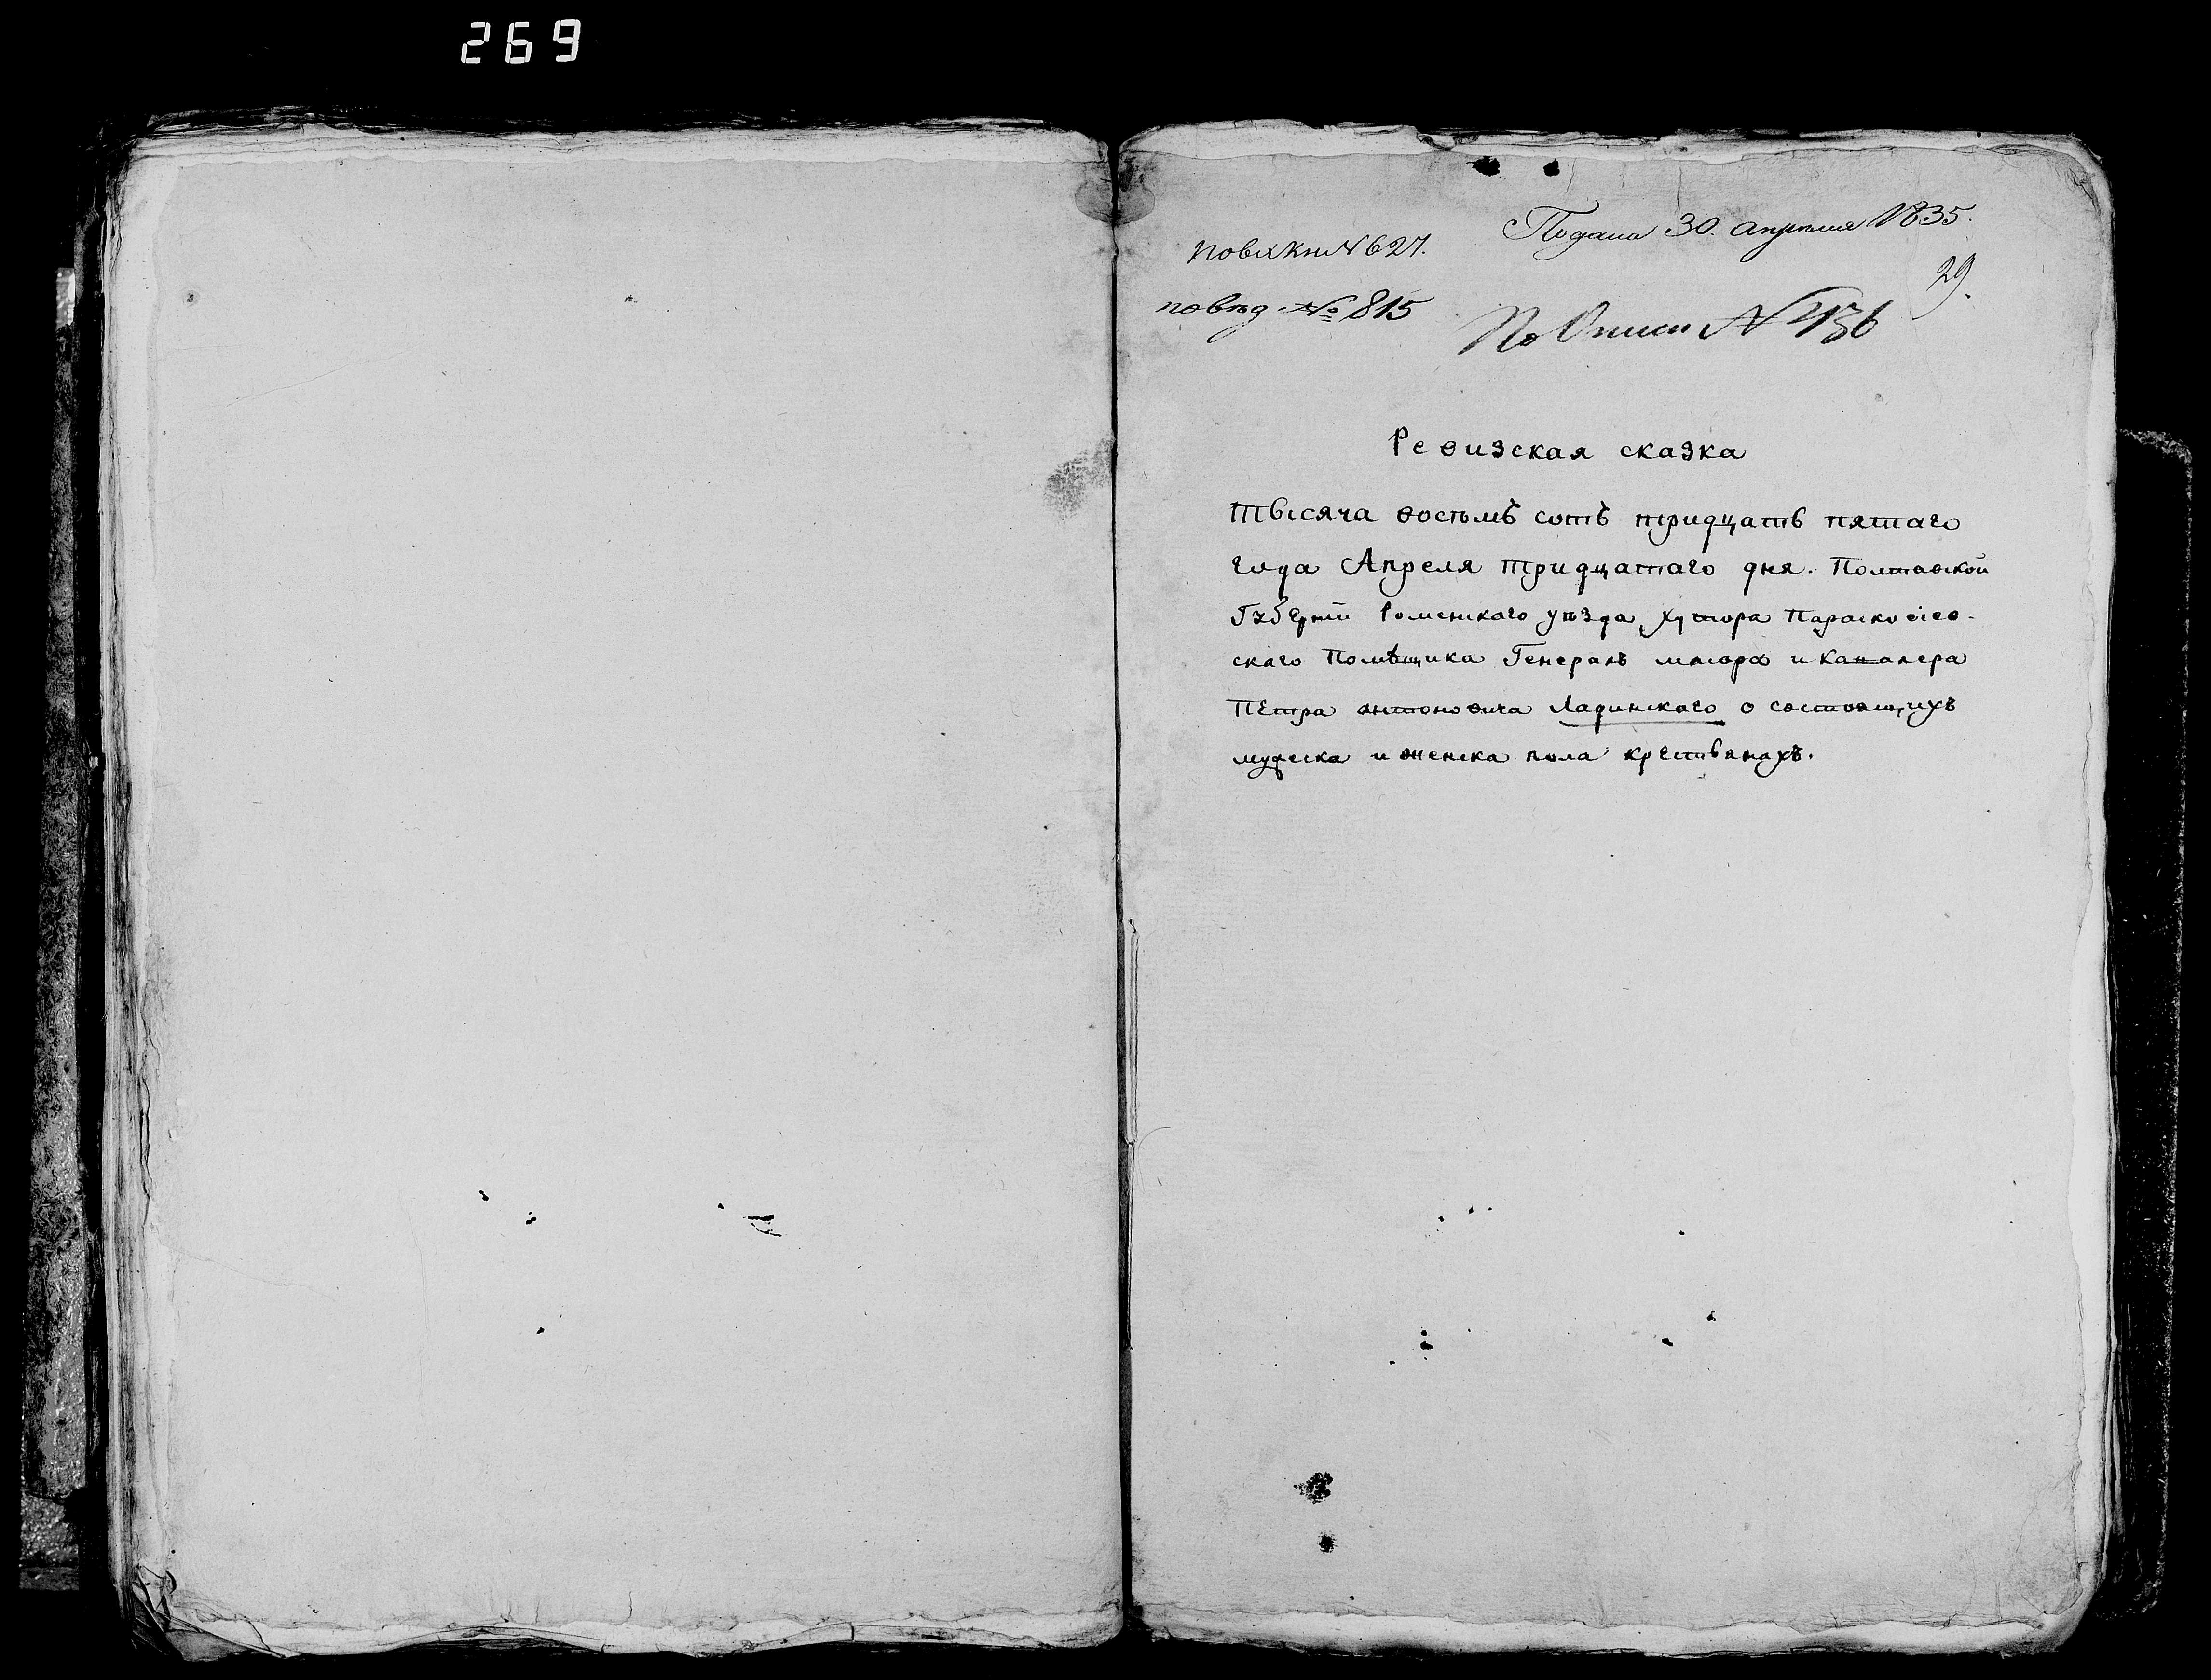 269
Подана 30. апрѣля 1835.
по вх кн № 627.
29.
по вѣд № 815
По Описи № 436
Ревизская сказка
тысяча восѣмъ сотъ тридцать пятаго
года Апреля тридцатаго дня. Полтавской
Губернїи Роменскаго уѣзда, хутора Параскоеїев-
скаго Помѣщика Генералъ маіора и Кавалера
Петра антоновича Ладинскаго о состоящихъ
мужеска и женска пола крестьянахъ.